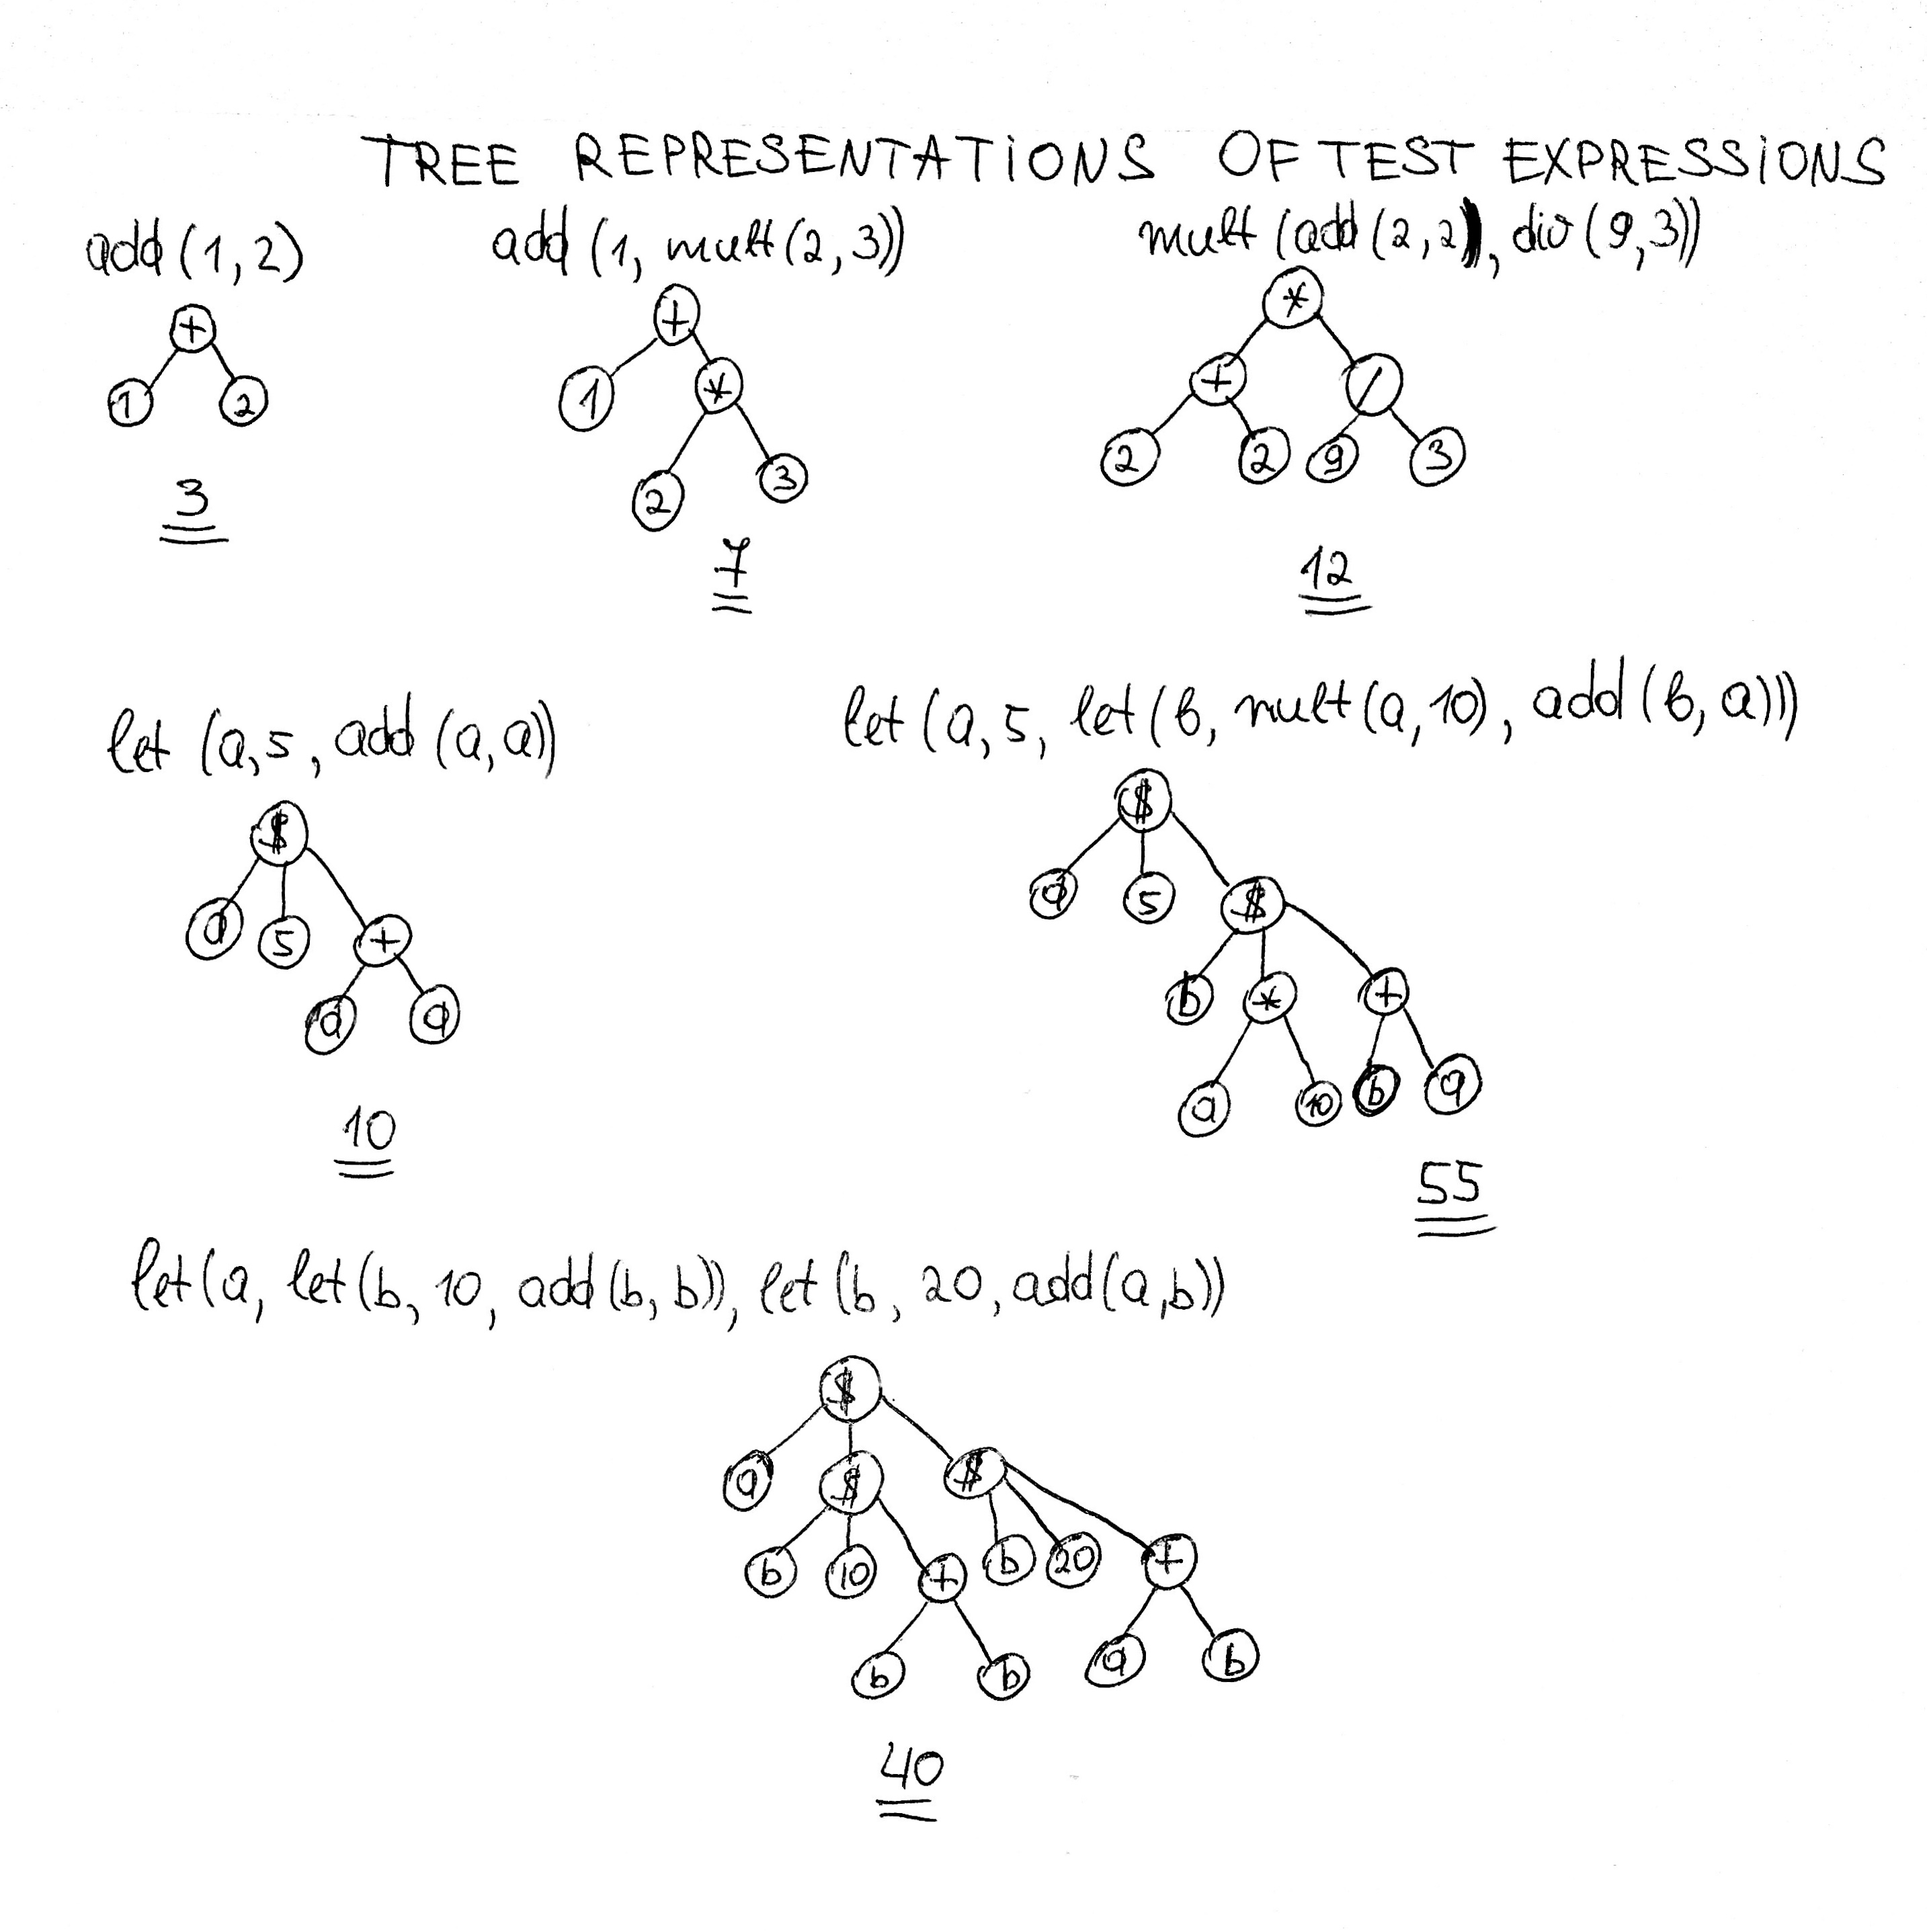 TREE REPRESENTATIONS OF TEST EXPRESSIONS
add (1, 2)
+
1 2
3
add (1, mult (2, 3))
+
1 *
2 3
7
mult (add (2, 2), div (9, 3))
*
+ /
2 2 9 3
12
let (a, 5, add (a, a))
$
a 5 +
a a
10
let (a, 5, let (b, mult (a, 10), add (b, a)))
$
a 5 $
b * +
a 10 b a
55
let (a, let (b, 10, add (b, b)), let (b, 20, add (a, b))
$
a $ $
b 10 + b 20 +
b b a b
40